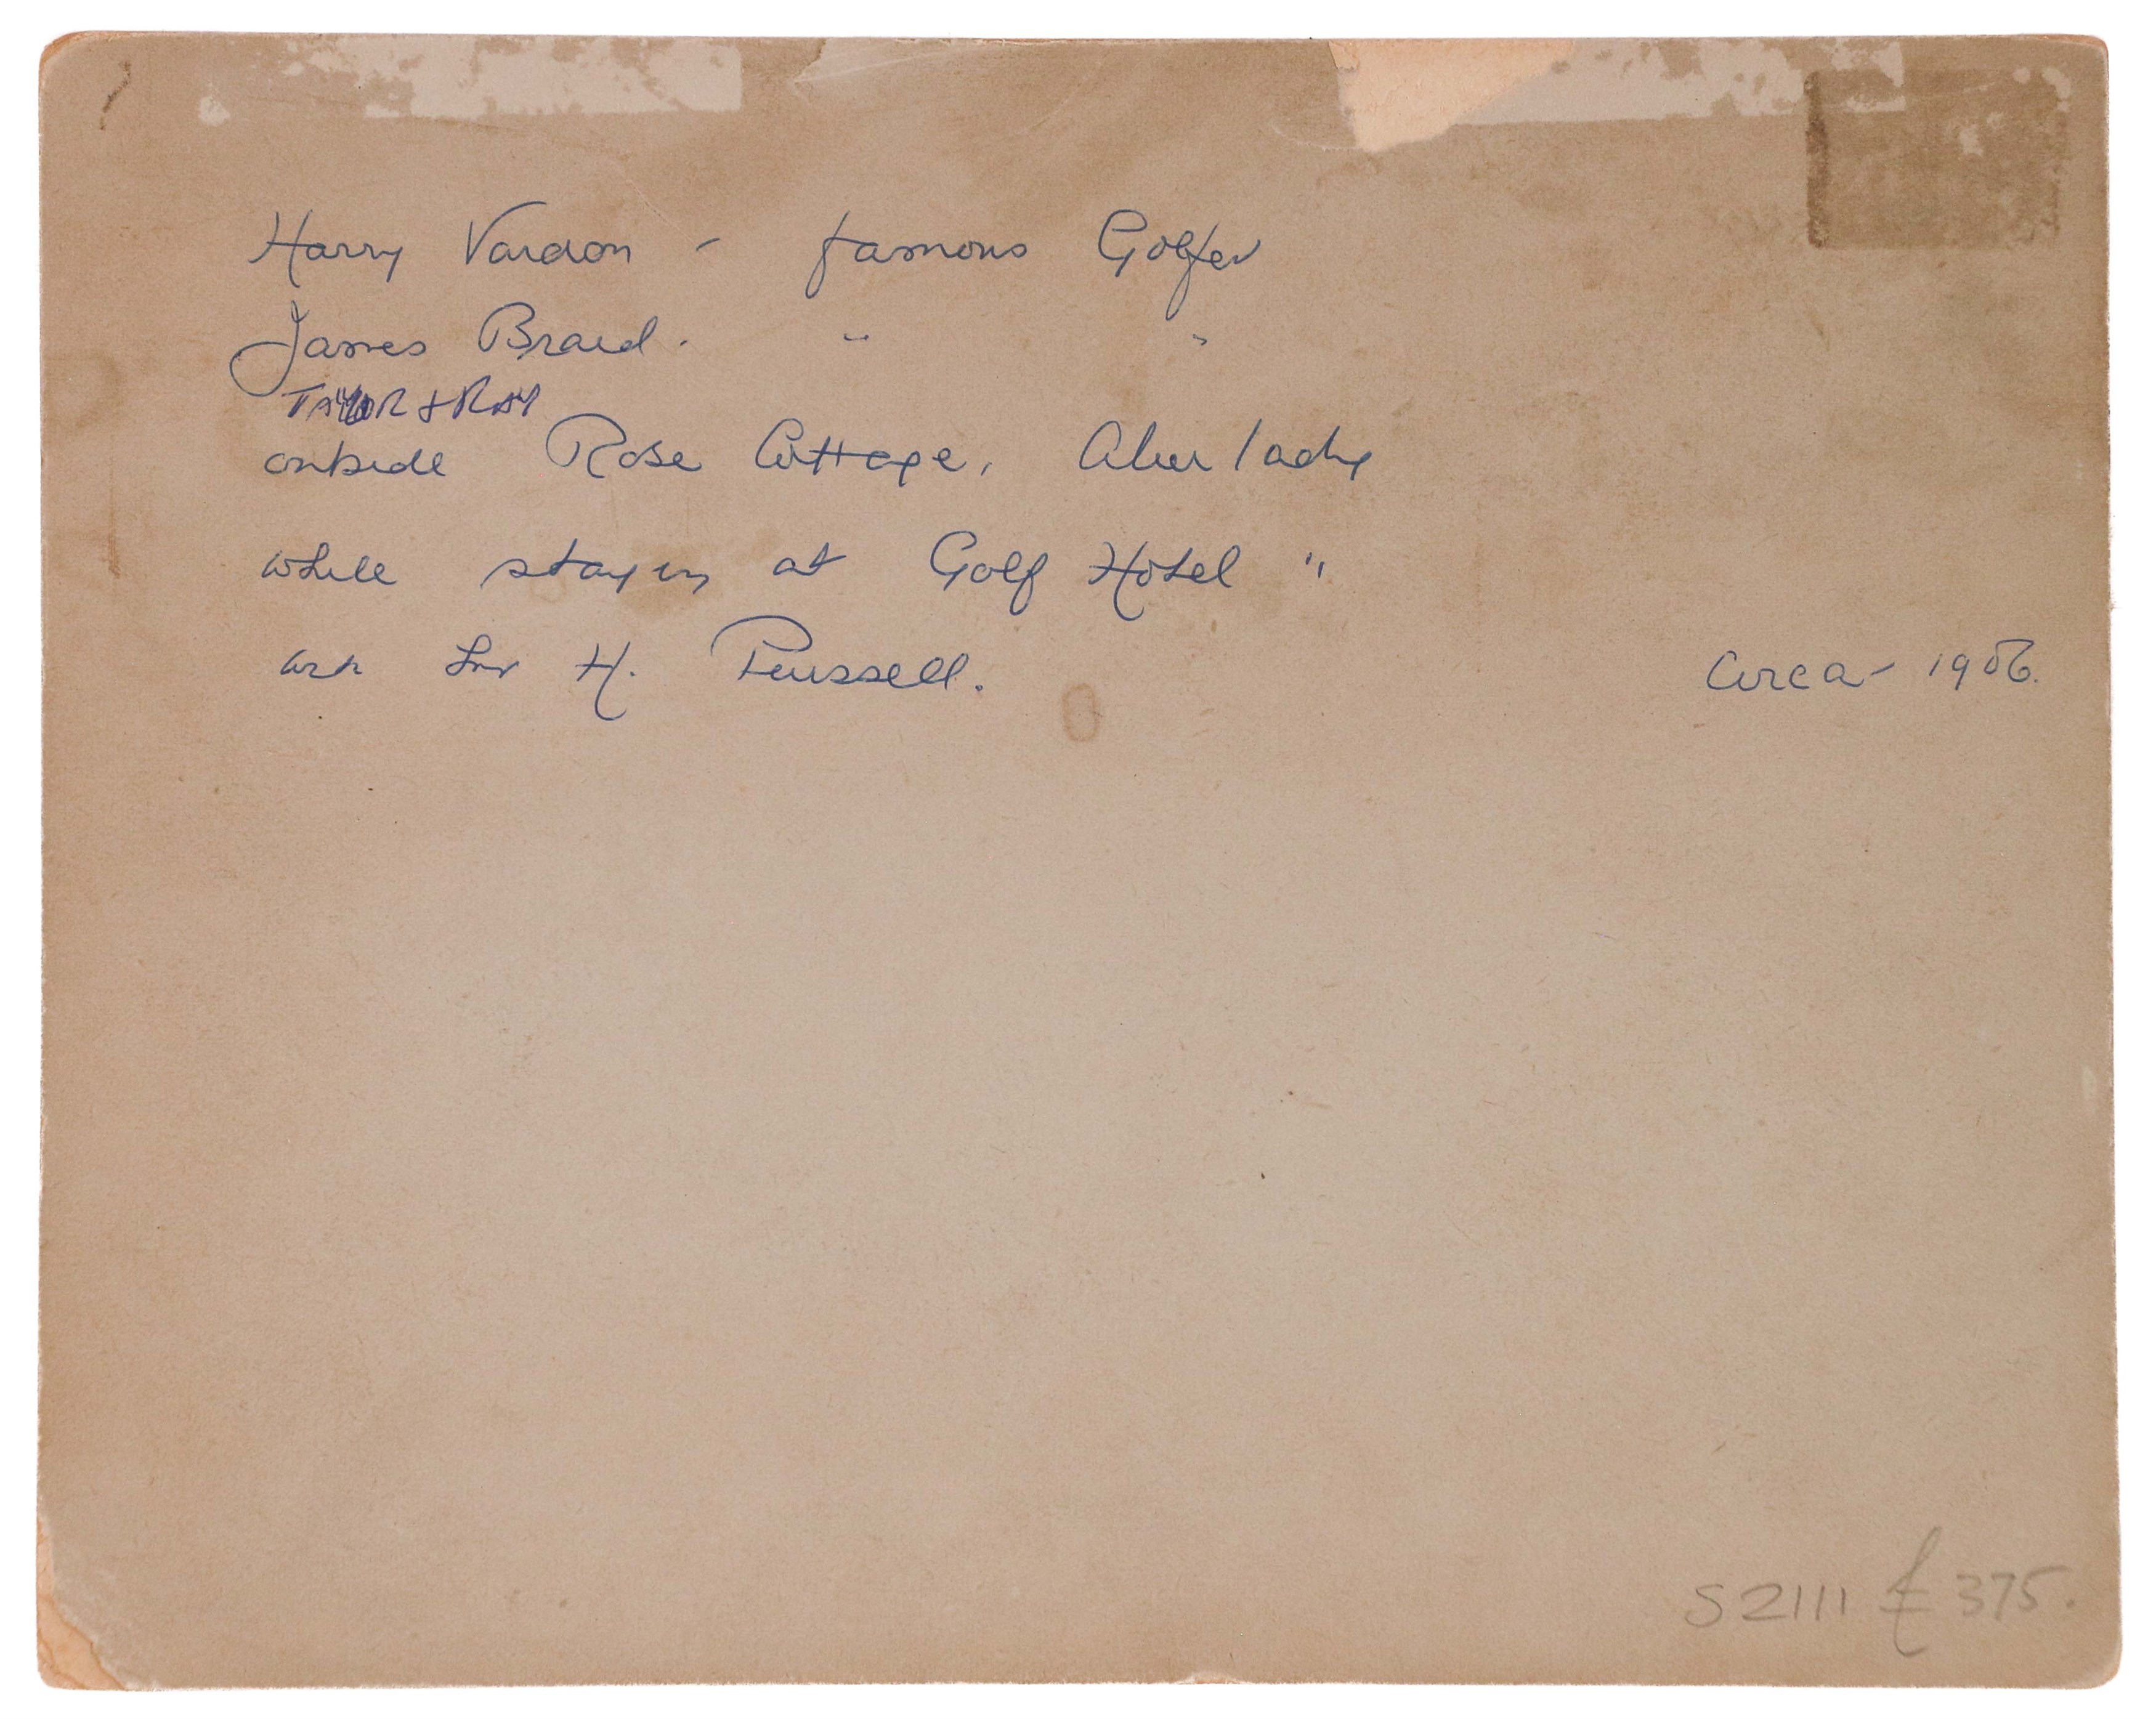 Harry Vardon - famous Golfer
James Braid. " "
TAYLOR & RAY
outside Rose Cottage, Aberlady
while staying at Golf Hotel "
H. Russell.
Circa - 1906.
S2111 £375.